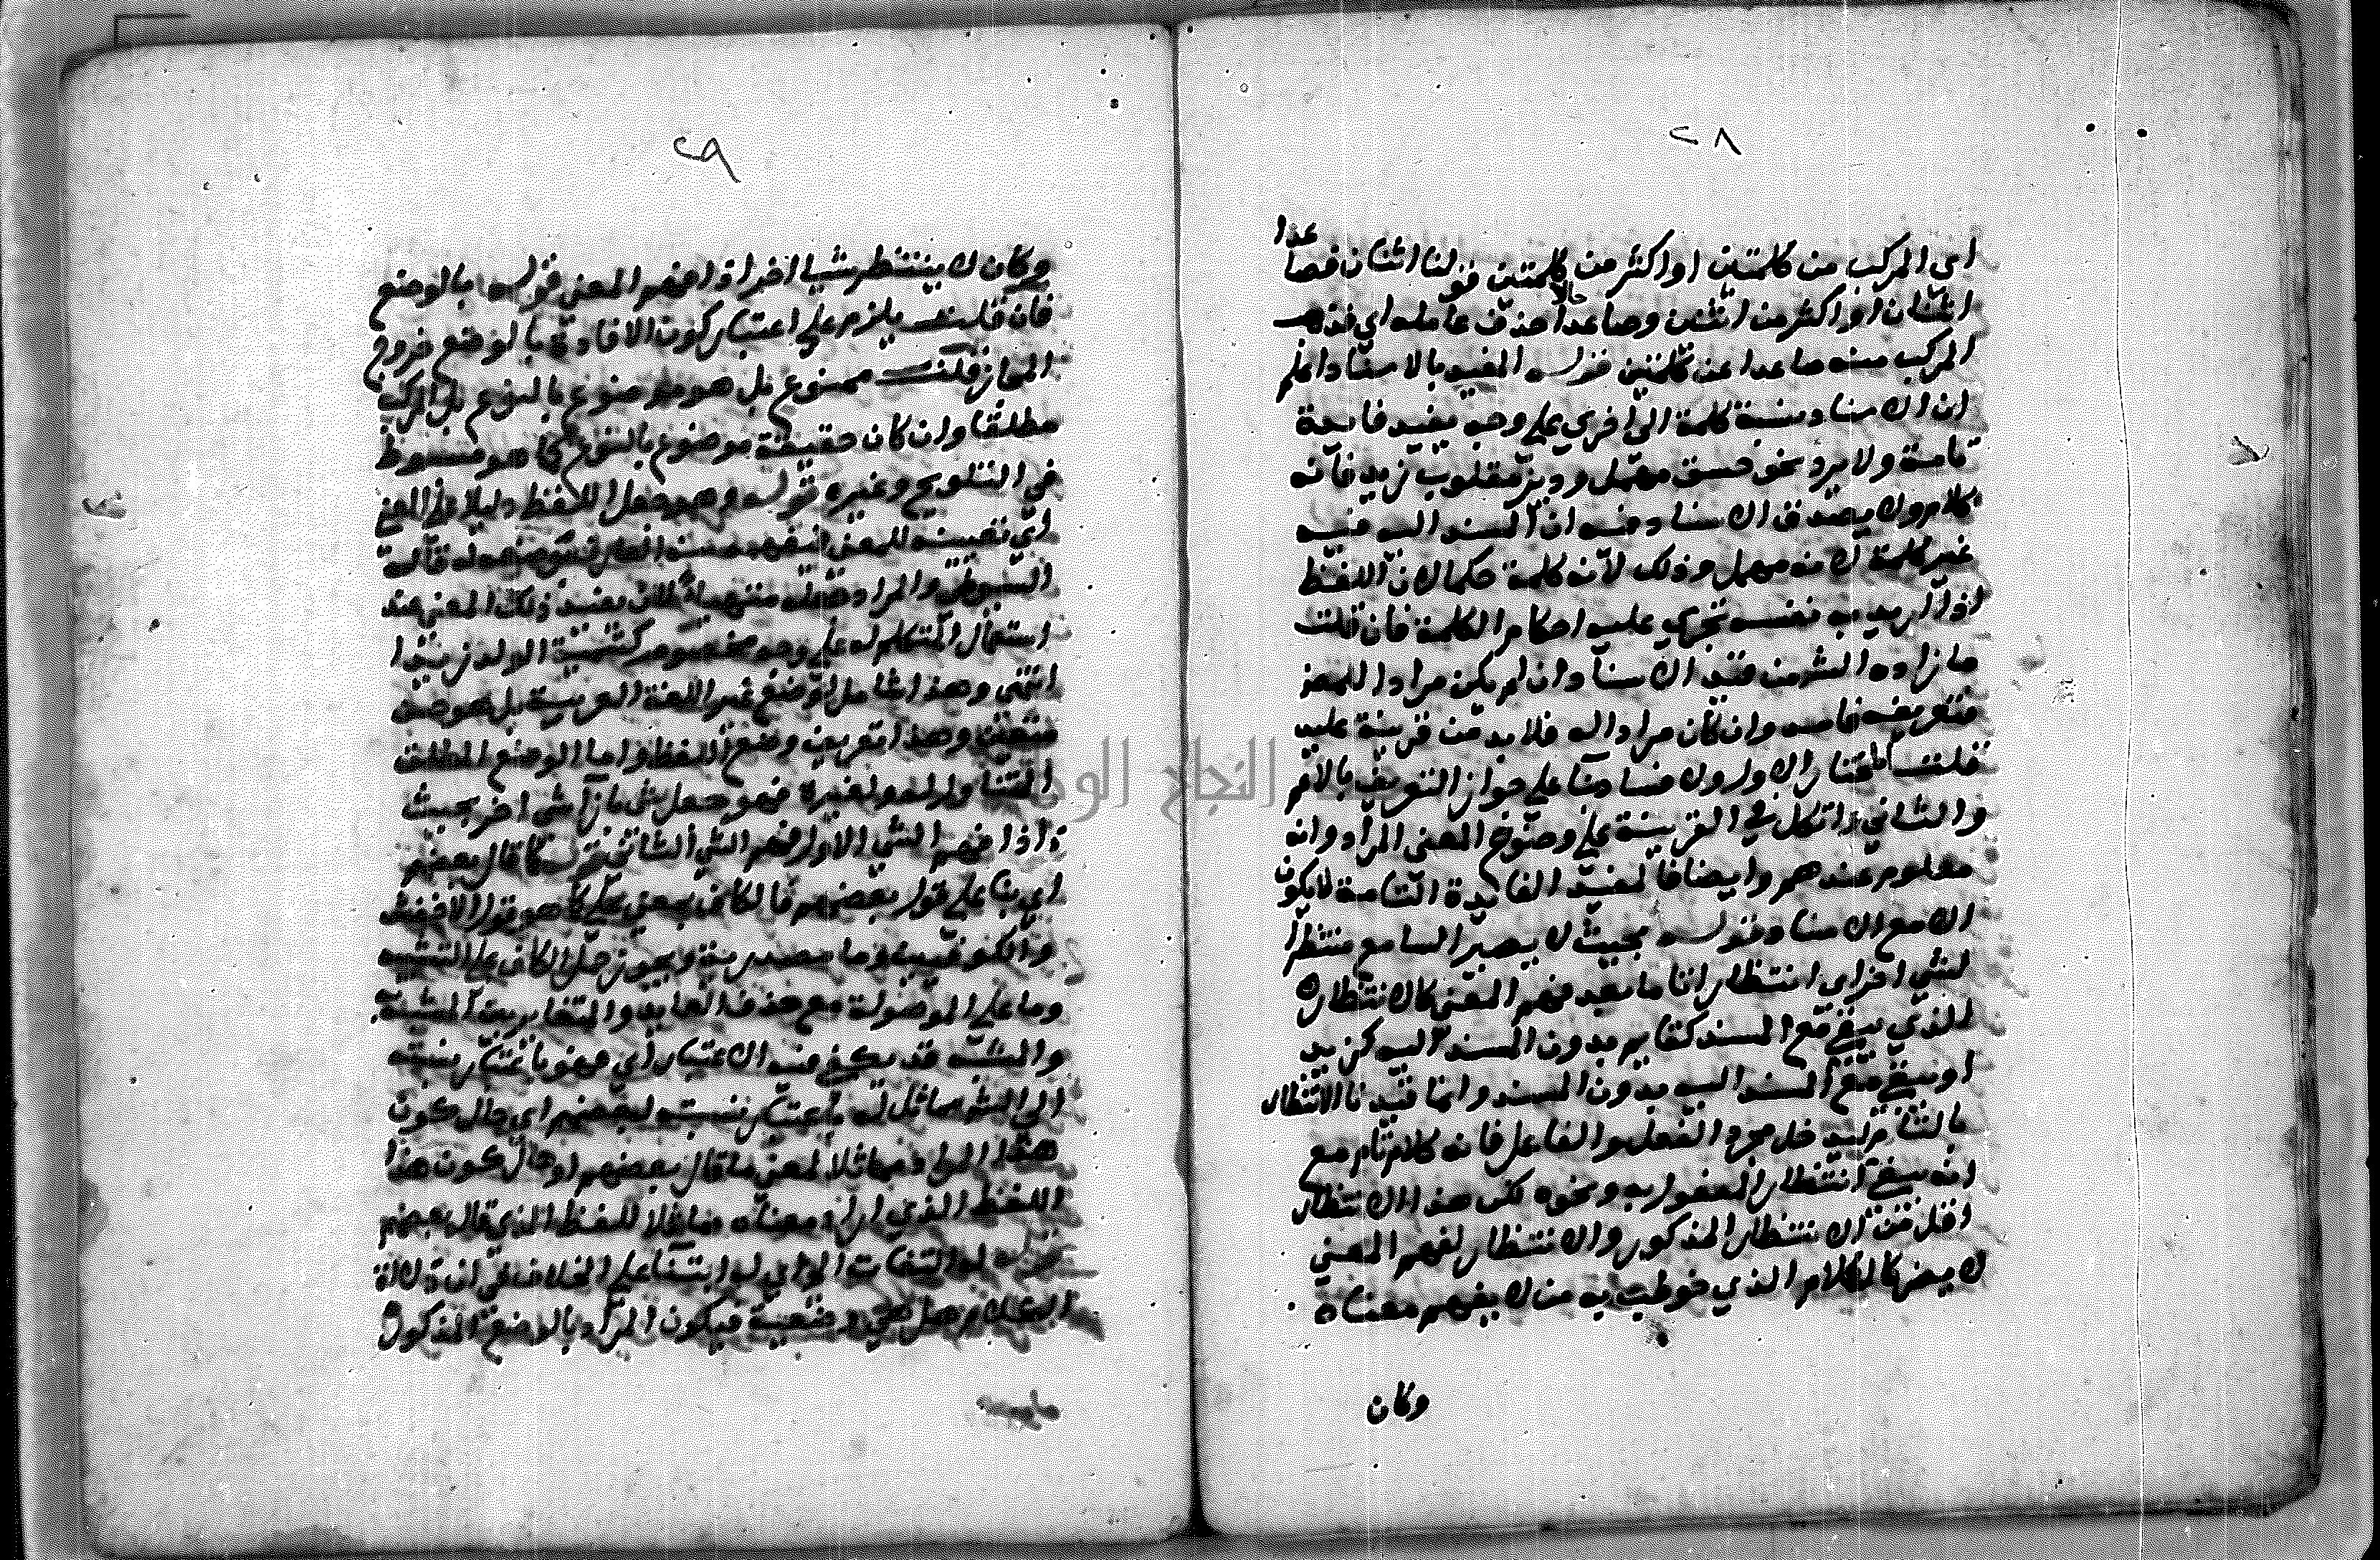 ٢٨
اي المركب من كلمتين او اكثر من كلمتين قولنا اثنان فصاعدا
اثنان او اكثر من اثنين وصاعدا حال حذف عامله اي فذهب
المركب منه صاعدا عن كلمتين قوله المفيد بالاسناد اعلم
ان الاسناد نسبة كلمة الى اخرى على وجه يفيد فايدة
تامة ولا يرد نحو جسق مهمل وديز مقلوب زيد فانه
كلام ولا يصدق الاسناد فيه ان المسند اليه فيه
غير كلمة لانه مهمل وذلك لانه كلمة حكما لان اللفظ
اذا اريد به نفسه تجري عليه احكام الكلمة فان قلت
ما زاده الش من قيد الاسناد ان لم يكن مرادا للمص
فتعريفه فاسد وان كان مرادا له فلا بد من قرينة عليه
قلت نختار الاول ونا على جواز التعريف بالاعم
والثاني واتكل في القرينة على وضوح المعنى المراد وانه
معلوم عندهم وايضا فالمفيد الفايدة التامة لا يكون
الا مع الاسناد قوله بحيث لا يصير السامع منتظرا
لشي اخر اي انتظارا تاما بعد فهم المعنى كالانتظار
الذي يبقى مع المسند كقايم بدون المسند اليه كزيد
او يبقى مع المسند اليه بدون المسند وانما قيدنا الانتظار
بالتام ليدخل مجرد الفعل والفاعل فانه كلام تام مع
انه يبقى انتظار المفعول به ونحوه لكن هذا الانتظار
اقل من الانتظار المذكور والانتظار لفهم المعنى
لا يضر كالكلام الذي خوطب به من لا يفهم معناه
وكان
٢٩
وكان لا ينتظر شيا اخر اذا فهم المعنى قوله بالوضع
فان قلت يلزم على اعتبار كون الافادة بالوضع خروج
المجاز قلت ممنوع بل هو موضوع بالنوع بل المركب
مطلقا وان كان حقيقة موضوع بالنوع كما هو مبسوط
في التلويح وغيره قوله وهو جعل اللفظ دليلا على المعنى
اي تعيينه للمعنى ليفهم منه العارف بوضعه له قال
السيوطي والمراد بجعله متهيا لان يفيد ذلك المعنى عند
استعمال المتكلم له على وجه مخصوص كتسمية الولد زيدا
انتهى وهذا شامل لوضع غير اللغة العربية بل هو
متعين وهذا تعريف وضع اللفظ واما الوضع المطلق
المتناول له ولغيره فهو جعل شي بازا شي اخر بحيث
اذا فهم الشي الاول فهم الشي الثاني قوله كما قال بعضهم
اي بنا على قول بعضهم فالكاف بمعنى على كما هو قول الاخفش
والكوفيين وما مصدرية ويجوز حمل الكاف على التشبيه
وما على الموصولة مع حذف العايد والتغاير بين المشبه
والمشبه قد يكفي فيه الاعتبار اي فهو باعتبار نسبته
الى الش مماثل له باعتبار نسبته لبعضهم اي حال كون
هذا المراد مماثلا لمعنى ما قال بعضهم او حال كون هذا
اللفظ الذي اراد معناه مماثلا للفظ الذي قال بعضهم
قوله له التفات الى اي له ابتنا على الخلاف في ان دلالة
الكلام هل هي وضعية فيكون المراد بالوضع المذكور